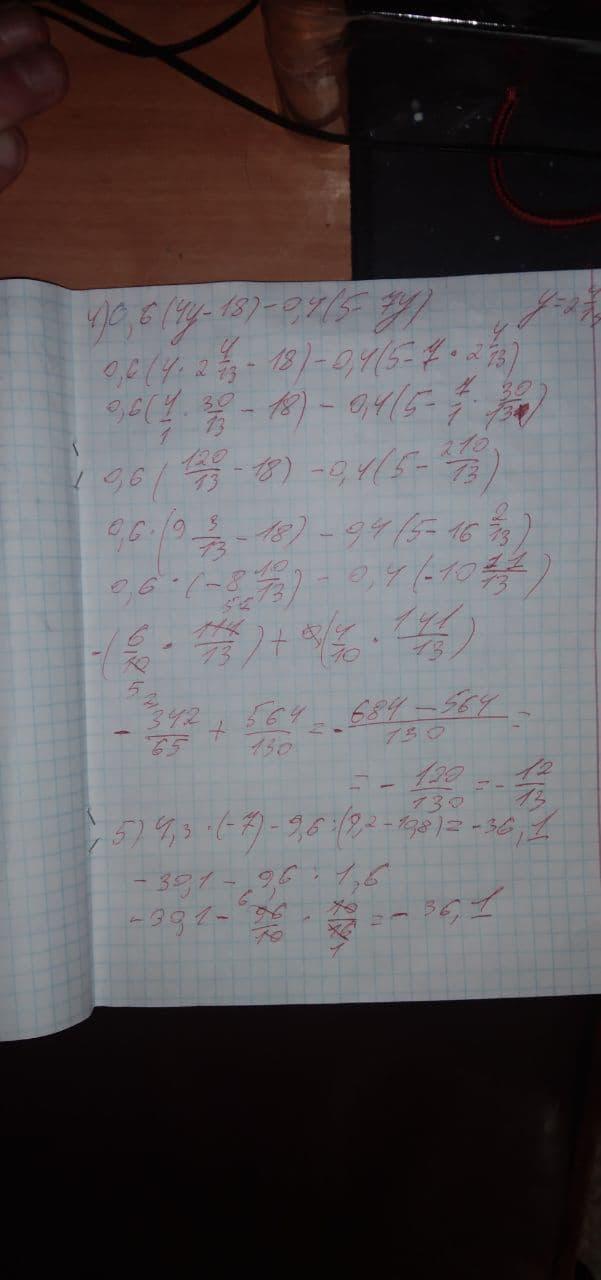 4) 0,6(4y-18)-0,4(5-7y) y=2 4/13
0,6(4·2 4/13-18)-0,4(5-7·2 4/13)
0,6(4/1·30/13-18)-0,4(5-7/1·30/13)
0,6(120/13-18)-0,4(5-210/13)
0,6·(9 3/13-18)-0,4(5-16 2/13)
0,6·(-8 10/13)-0,4(-10 11/13)
-(6/10·114/13)+(4/10·141/13)
-342/65+564/130=-684-564/130=
=-120/130=-12/13
5) 4,3·(-7)-9,6:(9,2-10,8)=-36,1
-30,1-9,6:1,6
-30,1-96/10·10/16=-36,1